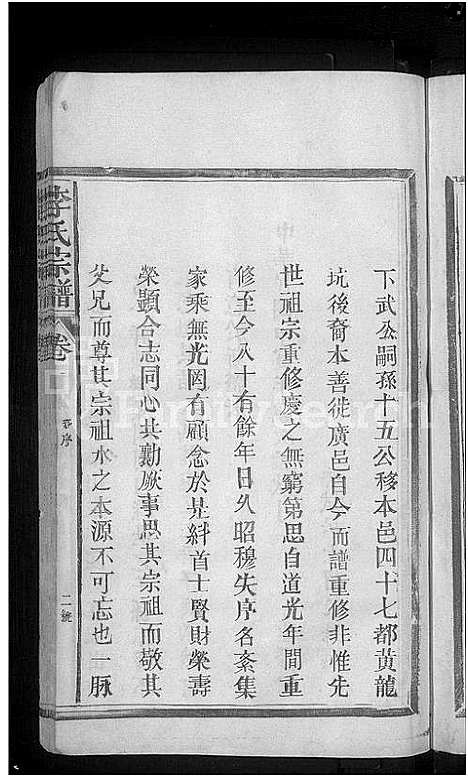 下武公嗣孫十五公移本邑四十七都黃龍
坑後裔本善徙廣邑自今而譜重修非惟先
世祖宗重修慶之無窮第思自道光年間重
修至今八十有餘年日久昭穆失序名紊集
家乘無光罔有顧念於是糾首士賢財榮壽
榮顯合志同心共勷厥事思其宗祖而敬其
父兄而尊其宗祖水之本源不可忘也一脉
李氏宗譜
卷
序
二